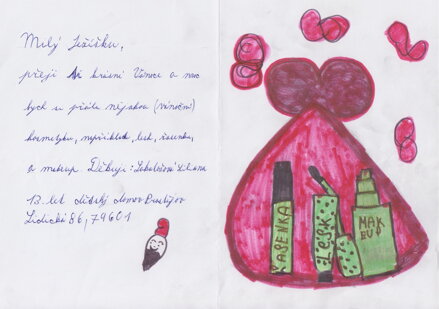 Milý Ježíšku,
přeji Ti krásné Vánoce a moc
bych si přála nějakou (vánoční)
kosmetiku, například lesk, řasenka,
a makeup. Děkuji: Liliana
13. let dětský domov Prostějov
Lidická 86, 79601
ŘASENKA
LESK
MAK
EUP